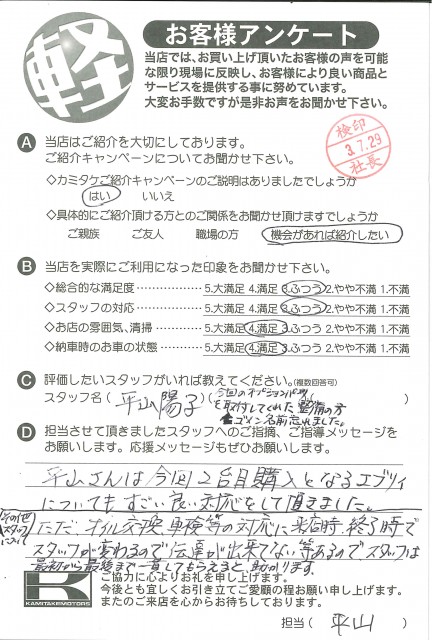 軽
お客様アンケート
当店では、お買い上げ頂いたお客様の声を可能
な限り現場に反映し、お客様により良い商品と
サービスを提供する事に努めています。
大変お手数ですが是非お声をお聞かせ下さい。
検印
3.7.29
社長
A 当店はご紹介を大切にしております。
ご紹介キャンペーンについてお聞かせ下さい。
◇カミタケご紹介キャンペーンのご説明はありましたでしょうか
はい いいえ
◇具体的にご紹介頂ける方とのご関係をお聞かせ頂けますでしょうか
ご親族 ご友人 職場の方 機会があれば紹介したい
B 当店を実際にご利用になった印象をお聞かせ下さい。
◇総合的な満足度 5.大満足 4.満足 3.ふつう 2.やや不満 1.不満
◇スタッフの対応 5.大満足 4.満足 3.ふつう 2.やや不満 1.不満
◇お店の雰囲気、清掃 5.大満足 4.満足 3.ふつう 2.やや不満 1.不満
◇納車時のお車の状態 5.大満足 4.満足 3.ふつう 2.やや不満 1.不満
C 評価したいスタッフがいれば教えてください。(複数回答可)
スタッフ名 ( 平山 陽子 ) (今回のオプションパーツ
を取付してくれた整備の方
名前忘れました。)
D 担当させて頂きましたスタッフへのご指摘、ご指導メッセージを
お願いします。応援メッセージもぜひお願いします。
平山さんは今回2台目購入となるエブリィ
についてもすごい良い対応をして頂きました。
その他
スタッフ
について
ただ、オイル交換、車検等の対応に来店時、終了時で
スタッフが変わるので伝達が出来てない等あるのでスタッフは
最初から最後まで一貫してもらえると助かります。
ご協力に心よりお礼を申し上げます。
今後とも宜しくお引き立てご愛顧の程お願い申し上げます。
またのご来店を心からお待ちしております。
K
KAMITAKEMOTORS
担当 ( 平山 )